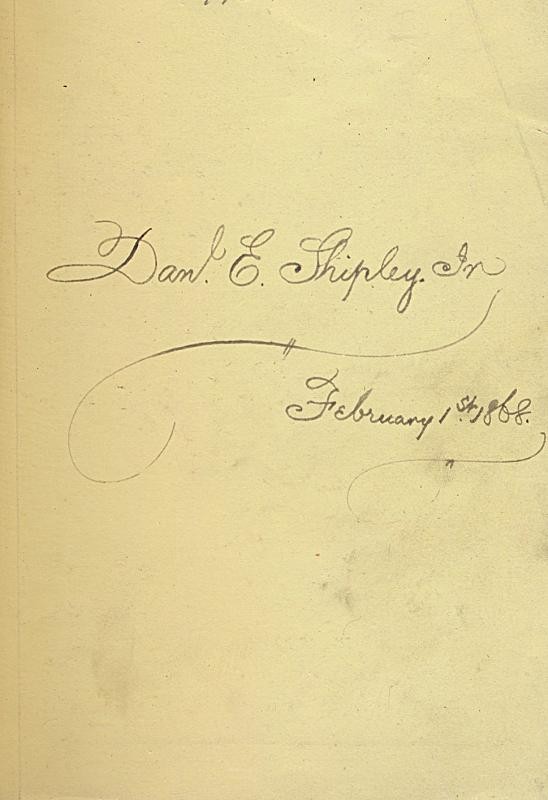 Danl. E. Shipley. Jr
February 1st. 1868.